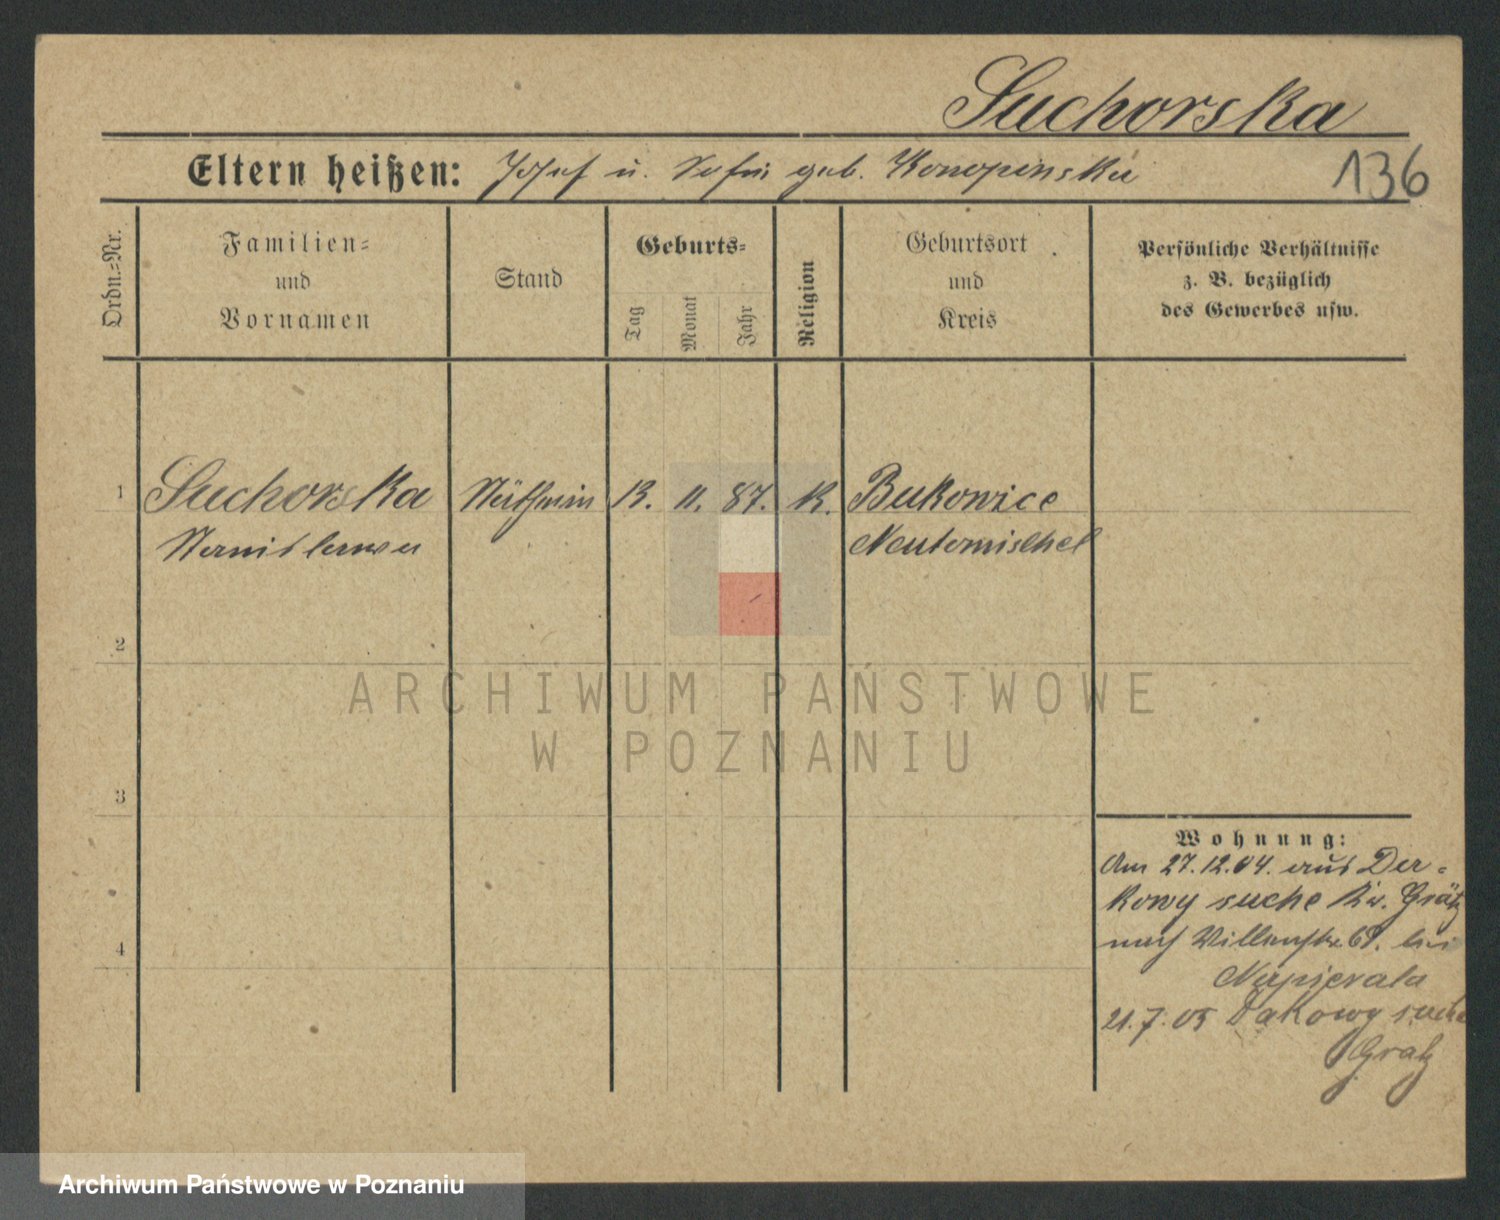 Suchorska
Eltern heißen: Josef u. Sofia geb. Konopinska
136
Ordn.=Nr.
Familien=
und
Vornamen
Stand
Geburts=
Tag
Monat
Jahr
Religion
Geburtsort
und
Kreis
Persönliche Verhältnisse
z. B. bezüglich
des Gewerbes usw.
1 Suchorska Nätherin 13. 11. 87. K. Bukowice
Stanislawa Neutomischel
2
ARCHIWUM PAŃSTWOWE
W POZNANIU
3
Wohnung:
Am 27.12.04. aus Da=
kowy suche Kr. Grätz
nach 69. bei
Napierala
21.7.05 Dakowy suche
Grätz
4
Archiwum Państwowe w Poznaniu